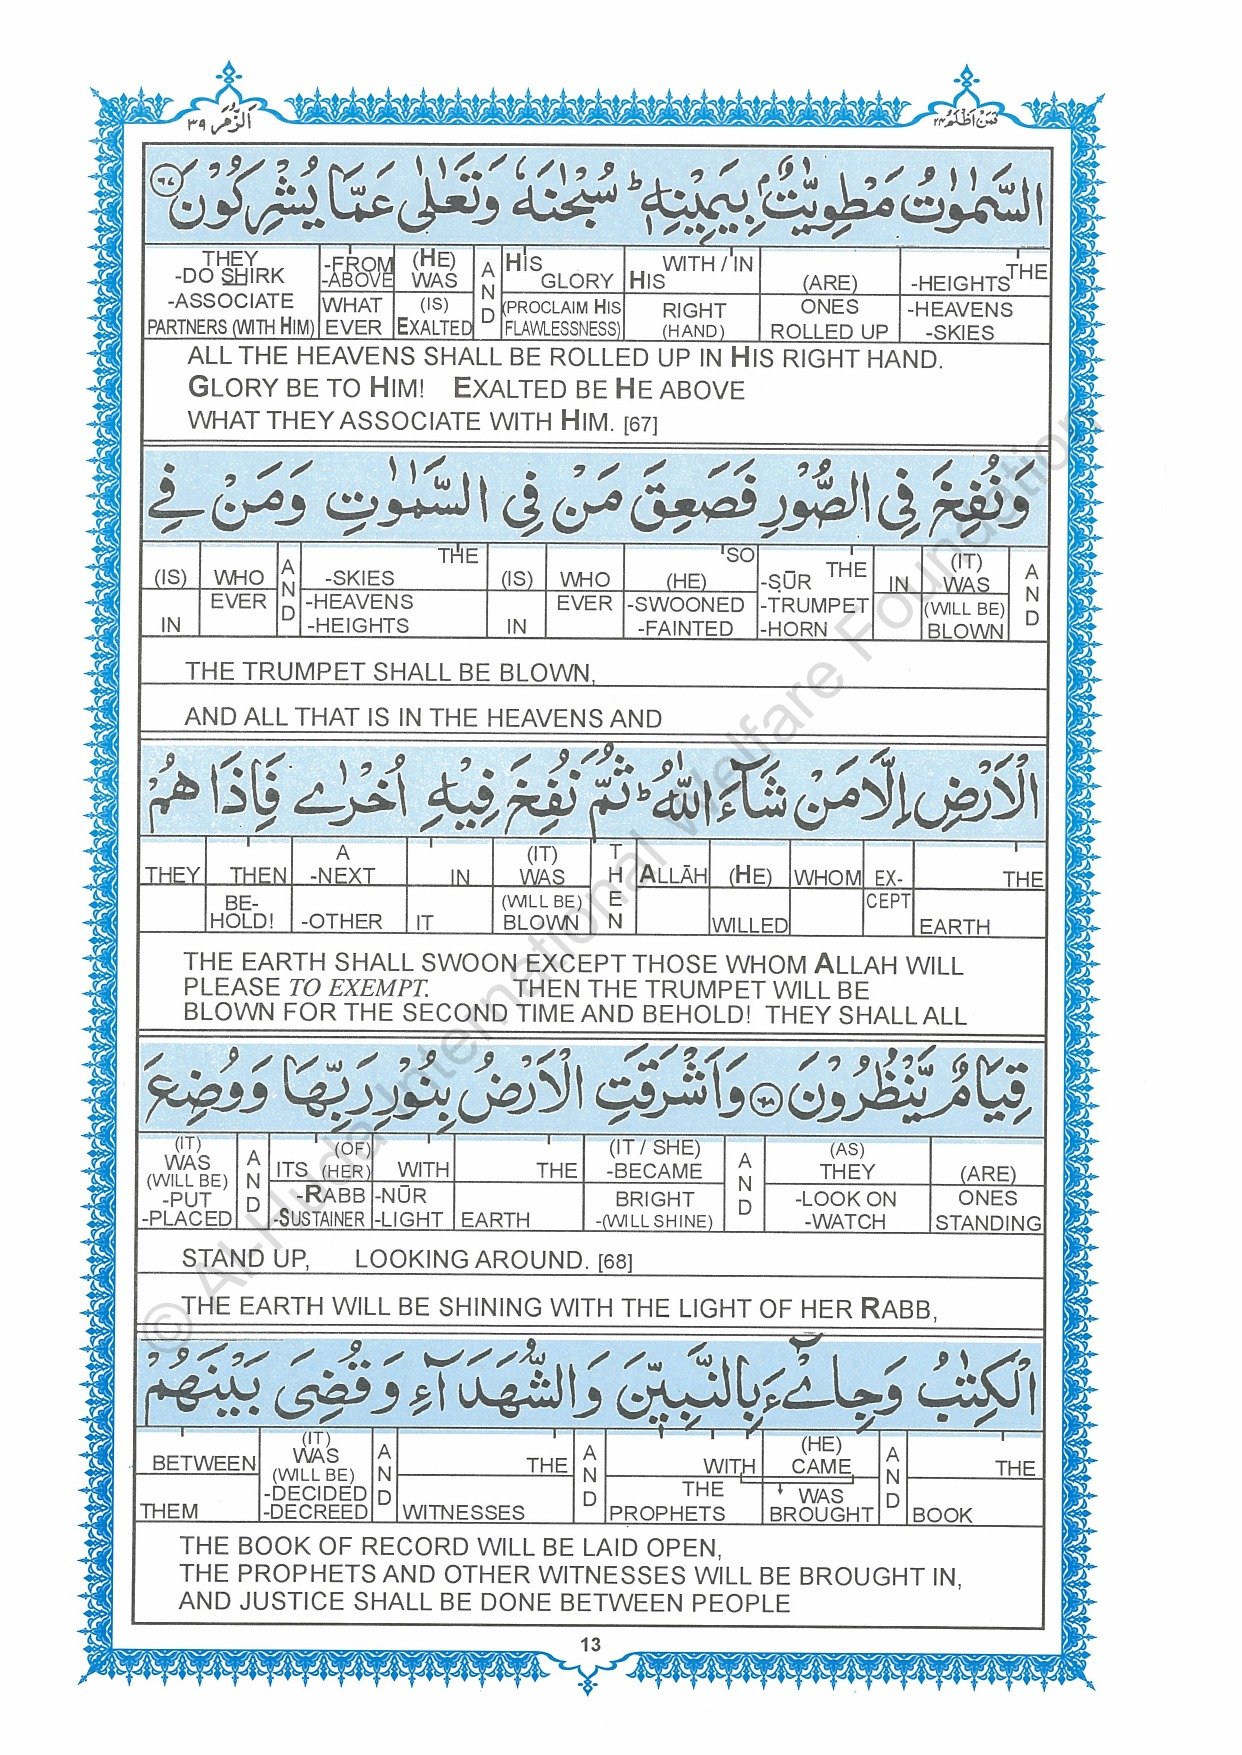 الزمر ٣٩
فمن اظلم ٢٤
السَّمٰوٰتُ مَطْوِيّٰتٌۢ بِيَمِيْنِهٖ ؕ سُبْحٰنَهٗ وَتَعٰلٰى عَمَّا يُشْرِكُوْنَ ٦٧
THE -HEIGHTS -HEAVENS -SKIES
(ARE) ONES ROLLED UP
WITH / IN HIS RIGHT (HAND)
HIS GLORY (PROCLAIM HIS FLAWLESSNESS)
AND
(HE) WAS (IS) EXALTED
-FROM -ABOVE WHAT EVER
THEY -DO SHIRK -ASSOCIATE PARTNERS (WITH HIM)
ALL THE HEAVENS SHALL BE ROLLED UP IN HIS RIGHT HAND.
GLORY BE TO HIM! EXALTED BE HE ABOVE
WHAT THEY ASSOCIATE WITH HIM. [67]
وَنُفِخَ فِى الصُّوْرِ فَصَعِقَ مَنْ فِى السَّمٰوٰتِ وَمَنْ فِى
AND
(IT) WAS (WILL BE) BLOWN
IN
THE -ṢŪR -TRUMPET -HORN
SO (HE) -SWOONED -FAINTED
WHO EVER
(IS) IN
THE -SKIES -HEAVENS -HEIGHTS
AND
WHO EVER
(IS) IN
THE TRUMPET SHALL BE BLOWN,
AND ALL THAT IS IN THE HEAVENS AND
الْاَرْضِ اِلَّا مَنْ شَآءَ اللّٰهُ ؕ ثُمَّ نُفِخَ فِيْهِ اُخْرٰى فَاِذَا هُمْ
THE EARTH
EX-CEPT
WHOM
(HE) WILLED
ALLĀH
THEN
(IT) WAS (WILL BE) BLOWN
IN IT
A -NEXT -OTHER
THEN BE-HOLD!
THEY
THE EARTH SHALL SWOON EXCEPT THOSE WHOM ALLAH WILL
PLEASE TO EXEMPT. THEN THE TRUMPET WILL BE
BLOWN FOR THE SECOND TIME AND BEHOLD! THEY SHALL ALL
قِيَامٌ يَّنْظُرُوْنَ ٦٨ وَاَشْرَقَتِ الْاَرْضُ بِنُوْرِ رَبِّهَا وَوُضِعَ
(ARE) ONES STANDING
(AS) THEY -LOOK ON -WATCH
AND
(IT / SHE) -BECAME BRIGHT -(WILL SHINE)
THE EARTH
WITH -NŪR -LIGHT
(OF) ITS (HER) -RABB -SUSTAINER
AND
(IT) WAS (WILL BE) -PUT -PLACED
STAND UP, LOOKING AROUND. [68]
THE EARTH WILL BE SHINING WITH THE LIGHT OF HER RABB,
الْكِتٰبُ وَجِاىْٓءَ بِالنَّبِيّٖنَ وَالشُّهَدَآءِ وَقُضِىَ بَيْنَهُمْ
THE BOOK
AND
(HE) CAME WAS BROUGHT
WITH THE PROPHETS
AND
THE WITNESSES
AND
(IT) WAS (WILL BE) -DECIDED -DECREED
BETWEEN THEM
THE BOOK OF RECORD WILL BE LAID OPEN,
THE PROPHETS AND OTHER WITNESSES WILL BE BROUGHT IN,
AND JUSTICE SHALL BE DONE BETWEEN PEOPLE
13
© Al-Huda International Welfare Foundation